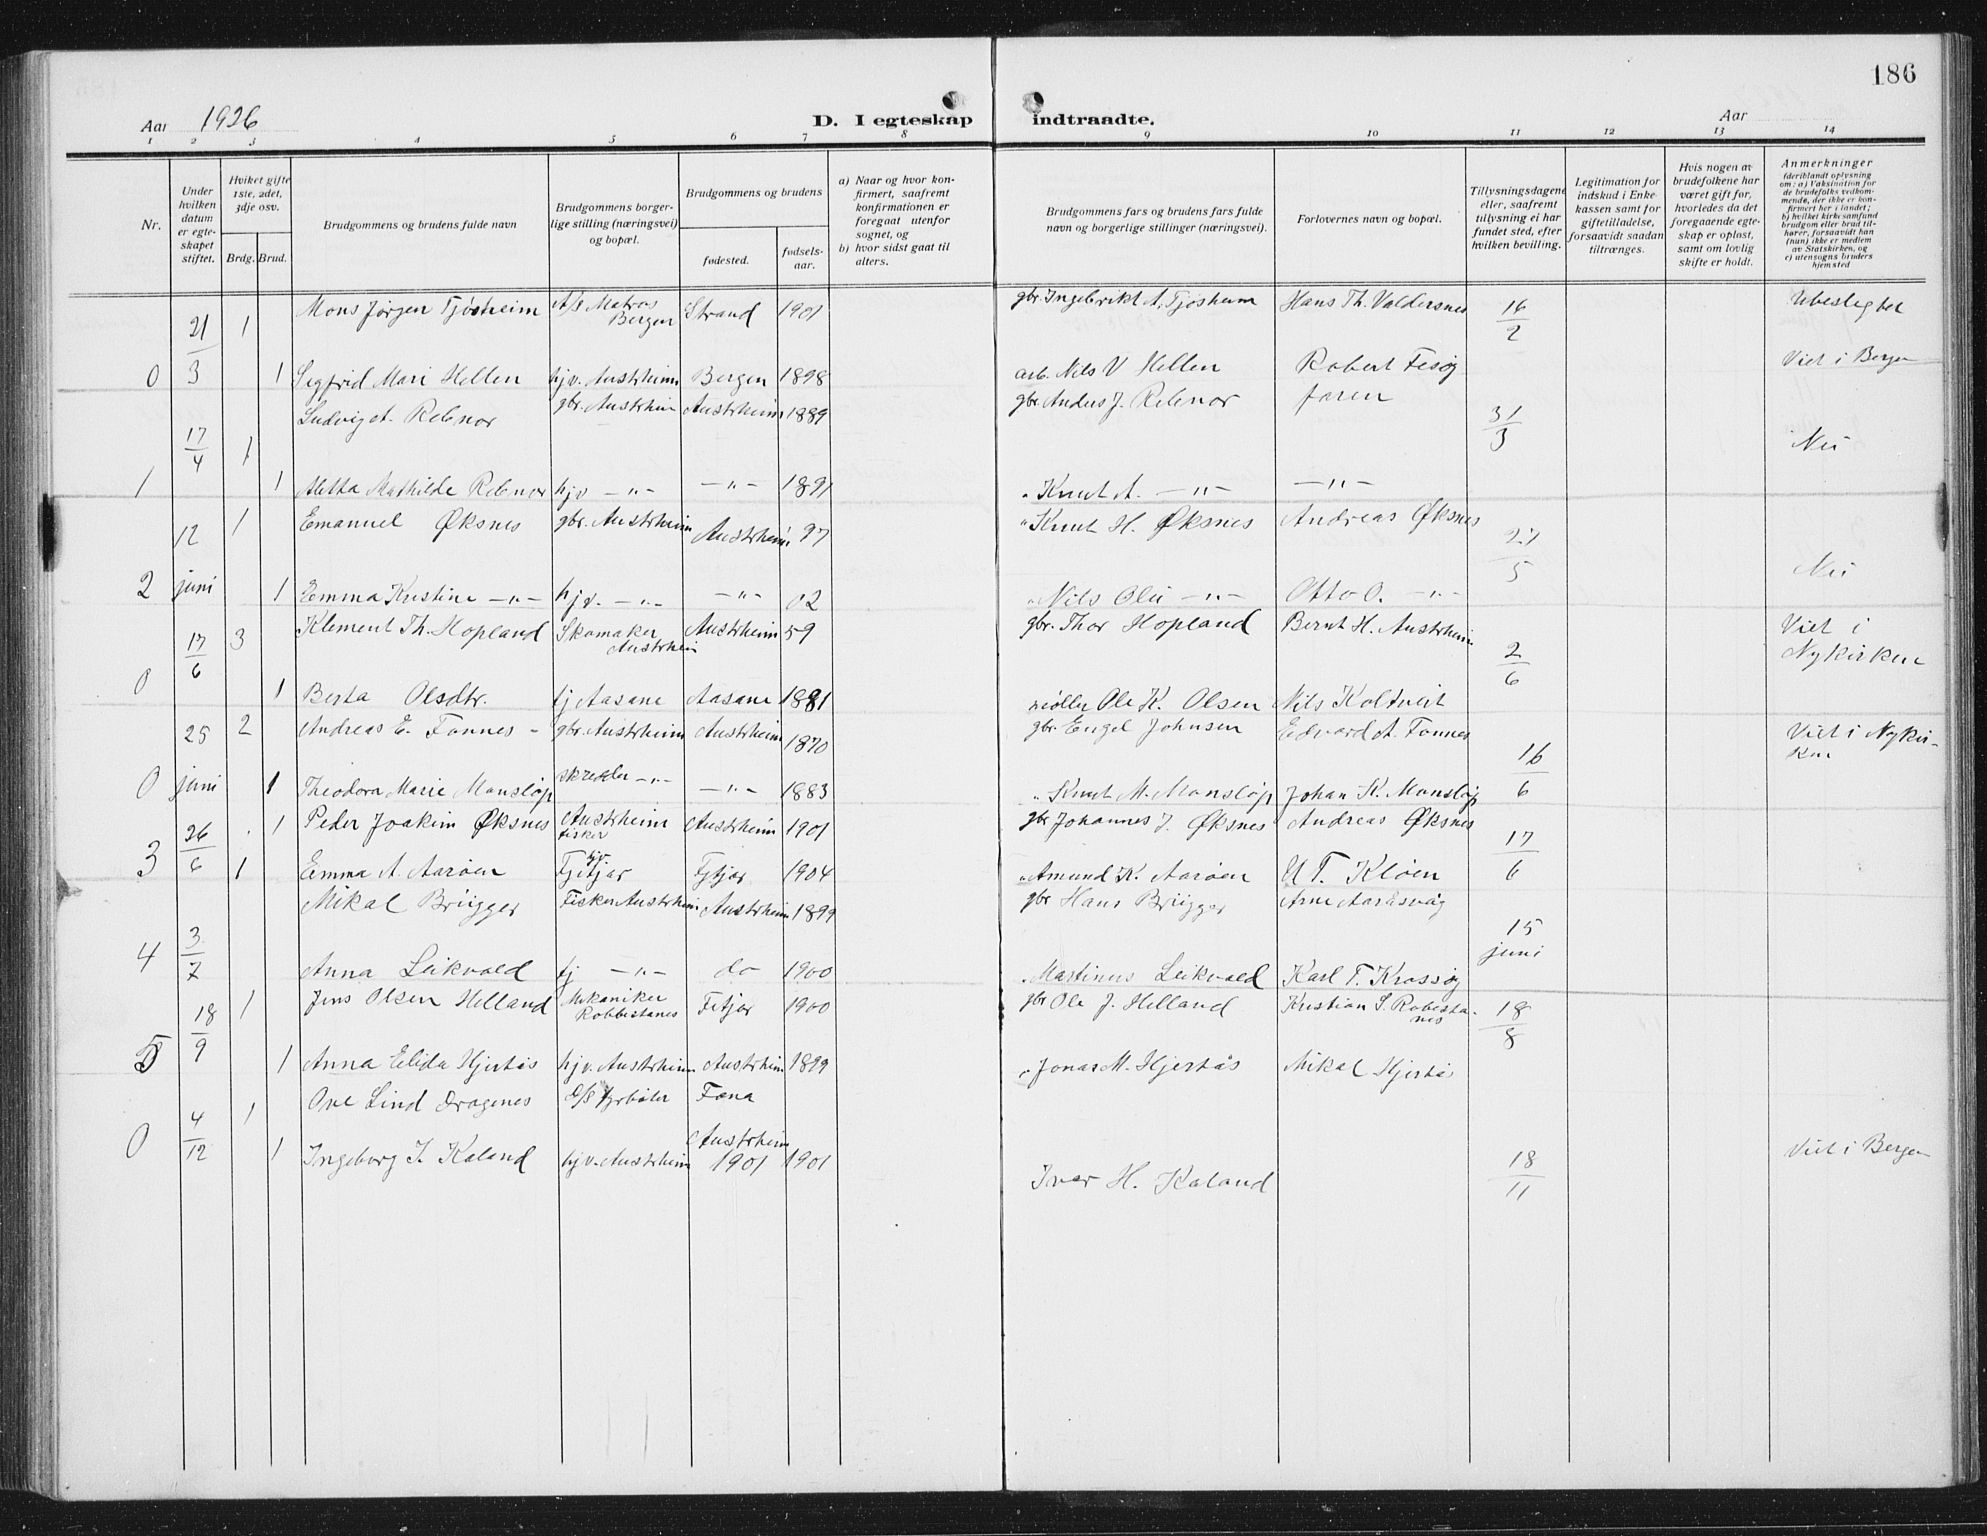 186
Aar 1926 D. I egteskap indtraadte. Aar
1 2 3 4 5 6 7 8 9 10 11 12 13 14
Nr.
Under hvilken datum er egteskapet stiftet.
Hvilket gifte 1ste, 2det, 3dje osv.
Brdg. Brud.
Brudgommens og brudens fulde navn
Brudgommens borgerlige stilling (næringsvei) og bopæl.
Brudgommens og brudens
fødested. fødselsaar.
a) Naar og hvor konfirmert, saafremt konfirmationen er foregaat utenfor sognet, og
b) hvor sidst gaat til alters.
Brudgommens fars og brudens fars fulde navn og borgerlige stillinger (næringsvei).
Forlovernes navn og bopæl.
Tillysningsdagene eller, saafremt tillysning ei har fundet sted, efter hvilken bevilling.
Legitimation for indskud i Enkekassen samt for giftetilladelse, forsaavidt saadan tiltrænges.
Hvis nogen av brudefolkene har været gift før, hvorledes da det foregaaende egteskap er opløst, samt om lovlig skifte er holdt.
Anmerkninger (deriblandt oplysning om: a) Vaksination for de brudefolks vedkommende, der ikke er konfirmert her i landet; b) hvilket kirkesamfund brudgom eller brud tilhører, forsaavidt han (hun) ikke er medlem av Statskirken, og c) utensogns bruders hjemsted
21/3 1 Mons Jørgen Tjøsheim A/S Matros Bergen Strand 1901 gbr Ingebrikt A. Tjøsheim Hans Th. Valdersnes 16/2 Ubeslegtet
0 1 Sigfrid Mari Hellen hjv. Austrheim Bergen 1898 arb. Nils V Hellen Robert Fesøy Viet i Bergen
17/4 1 Ludvig A. Rebnor gbr. Austrheim Austrheim 1889 gbr Anders J. Rebnor faren 31/3 Nei
1 1 Mathilde Rebnor hjv -"- -"- 1891 " Knut A. -"- -"-
12 juni 1 Emanuel Øksnes gbr. Austrheim Austrheim 97 " Knut H. Øksnes Andreas Øksnes 27/5 Nei
2 1 Emma Kristine -"- hjv. -"- -"- 02 " Nils Olii -"- Otto O. -"-
17/6 3 Klement Th. Hopland Skomaker Austrheim Austrheim 59 gbr. Thor Hopland Bernt H. Austrheim 2/6 Viet i Nykirken
0 1 Berta Olsdtr. tj Aasane Aasane 1881 møller Ole K. Olsen Nils Koltveit
25 juni 2 Andreas E. Fonnes - gbr. Austrheim Austrheim 1870 gbr. Engel Johnsen Edvard A. Fonnes 16/6 Viet i Nykirken
0 1 Theodora Marie Monsløp -"- -"- 1883 " Knut M. Monsløp Johan K. Monsløp
26/6 1 Peder Joakim Øksnes Austrheim fisker Austrheim 1901 gbr Johannes J. Øksnes Andreas Øksnes 17/6
3 1 Emma A. Aarøen hjv. Fitjar Fitjar 1904 " Amund K. Aarøen U T. Kløen
3/7 Mikal Brügger Fisker Austrheim Austrheim 1899 gbr Hans Brügger Arne Aaråsvåg 15 juni
4 Anna Leikvold tj -"- do 1900 " Martinus Leikvold Karl T. Krossøy
18/9 1 Jens Olsen Helland Mekaniker Robbestanes Fitjar 1900 gbr Ole J. Helland Kristian S. Robestanes 18/8
5 1 Anna Elida Hjertås hjv. Austrheim Austrheim 1899 " Jonas M. Hjertås Mikal Hjertås
4/12 1 Ove Lind Dragenes D/S fyrbøter Fana
0 1 Ingeborg I. Kaland hjv. Austrheim Austrheim 1901 1901 Iver H. Kaland 18/11 Viet i Bergen